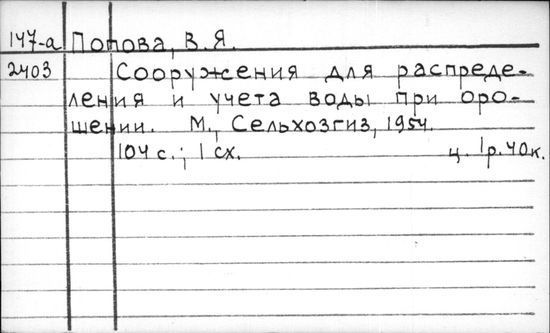 147-а Попова, В.Я.
2403 Сооружения для распреде-
ления и учета воды при оро-
шении. М., Сельхозгиз, 1954.
104 с.; 1 сх. ц. 1р.40к.